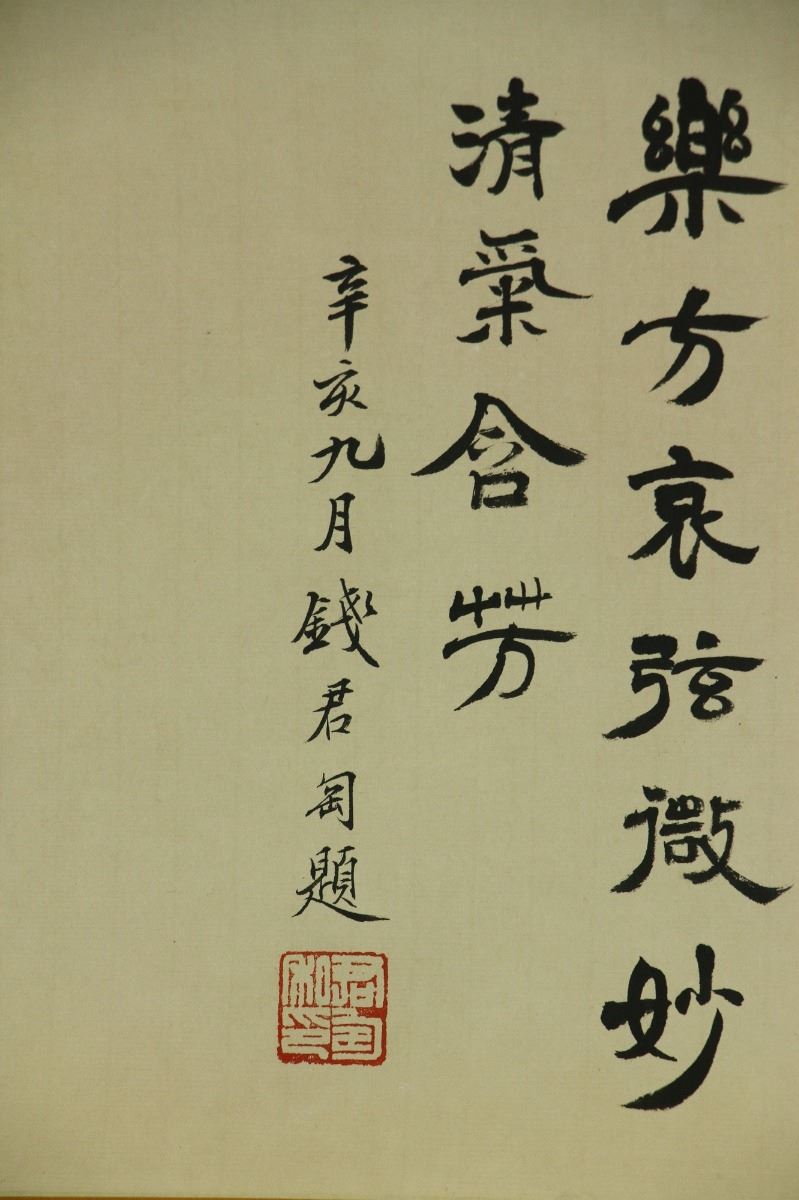 樂方哀弦微妙
清氣含芳
辛亥九月錢君匋題
君匋私印